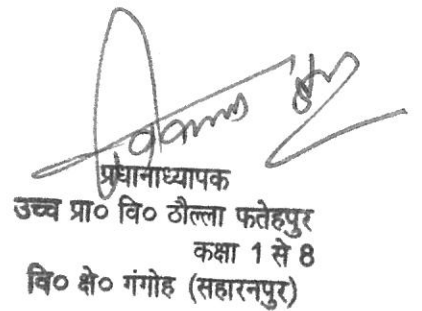 प्रधानाध्यापक
उच्च प्रा० वि० ठौल्ला फतेहपुर
कक्षा 1 से 8
वि० क्षे० गंगोह (सहारनपुर)